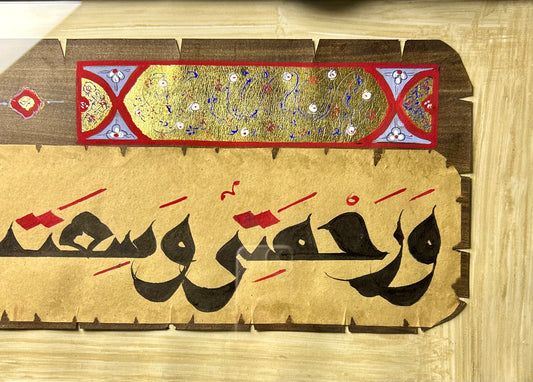 وَرَحْمَتِي وَسِعَت